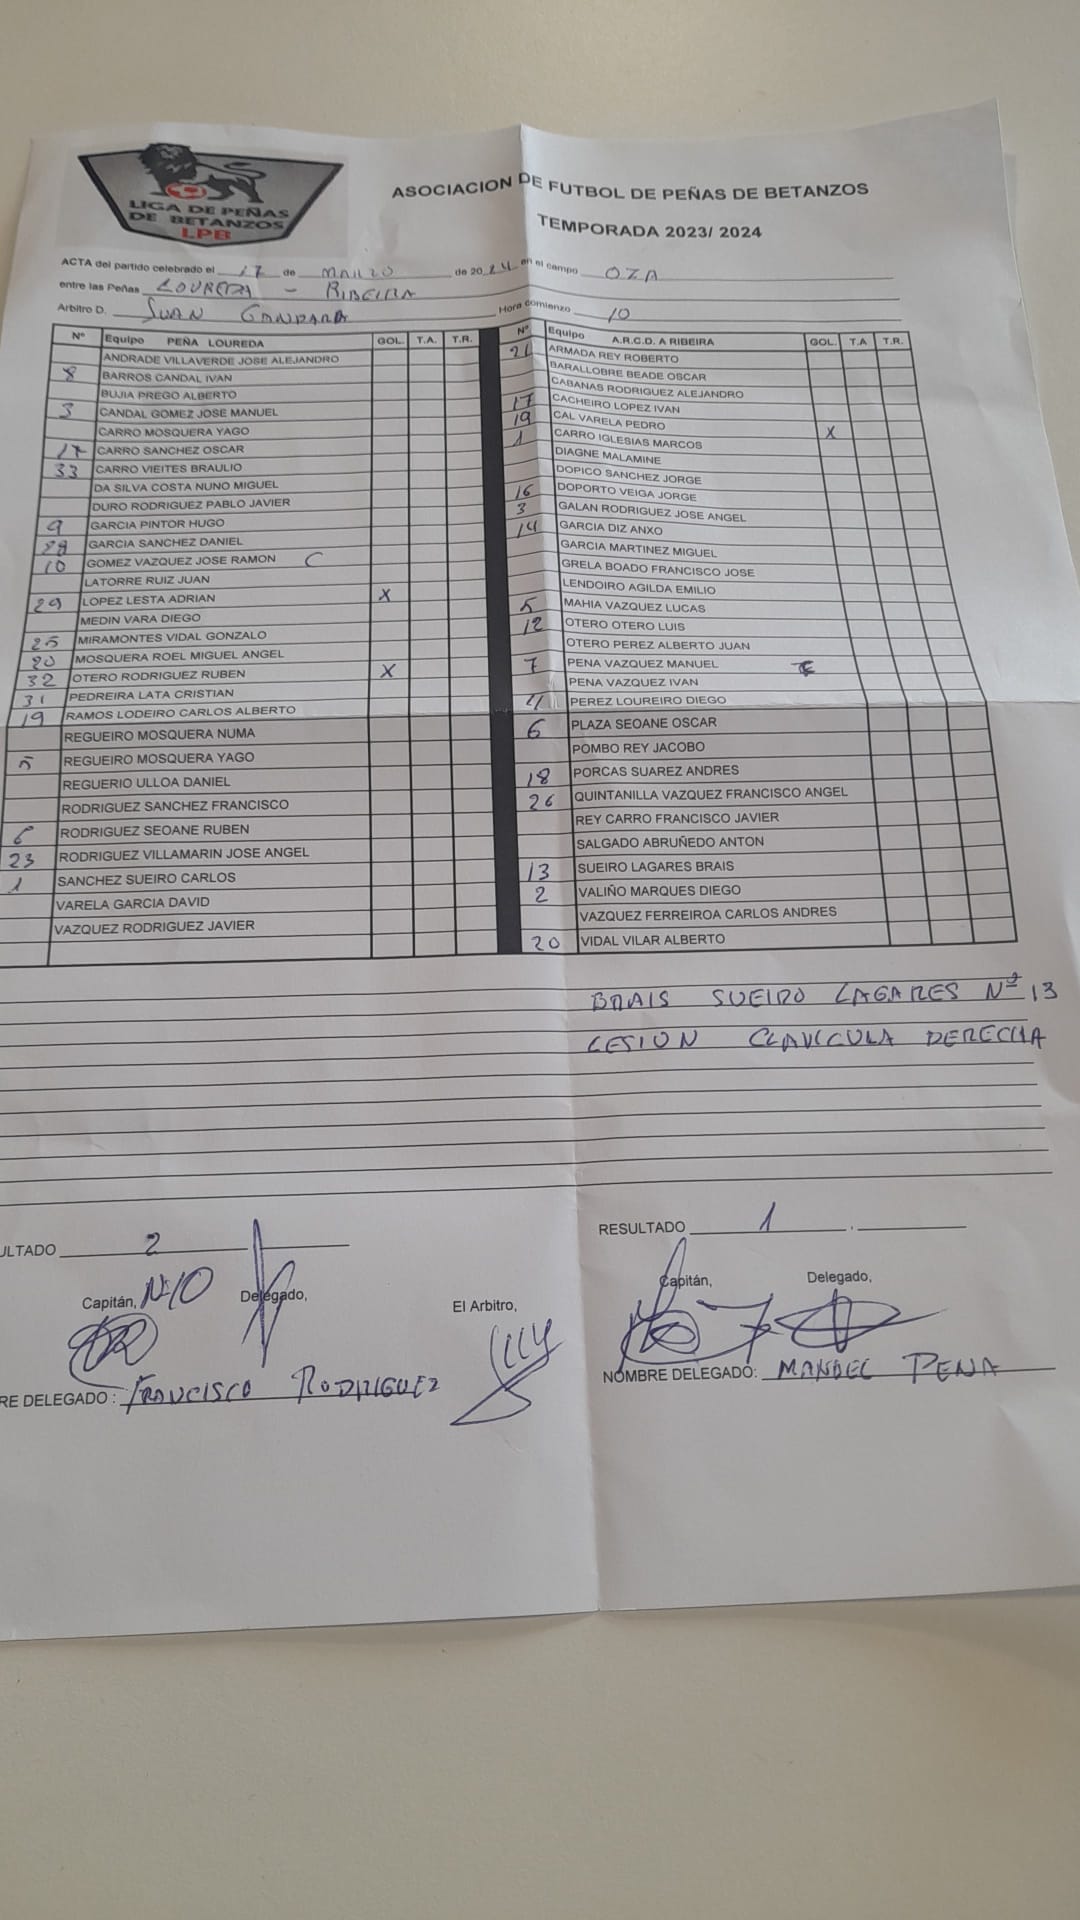 LIGA DE PEÑAS
DE BETANZOS
LPB
ASOCIACION DE FUTBOL DE PEÑAS DE BETANZOS
TEMPORADA 2023/ 2024
ACTA del partido celebrado el 17 de MARZO de 2024 en el campo OZA
entre las Peñas LOUREDA - RIBEIRA
Arbitro D. JUAN GANDARA Hora comienzo 10
Nº Equipo PEÑA LOUREDA GOL. T.A. T.R.
ANDRADE VILLAVERDE JOSE ALEJANDRO
8 BARROS CANDAL IVAN
BUJIA PREGO ALBERTO
3 CANDAL GOMEZ JOSE MANUEL
CARRO MOSQUERA YAGO
17 CARRO SANCHEZ OSCAR
33 CARRO VIEITES BRAULIO
DA SILVA COSTA NUNO MIGUEL
DURO RODRIGUEZ PABLO JAVIER
9 GARCIA PINTOR HUGO
28 GARCIA SANCHEZ DANIEL
10 GOMEZ VAZQUEZ JOSE RAMON C
LATORRE RUIZ JUAN
29 LOPEZ LESTA ADRIAN X
MEDIN VARA DIEGO
25 MIRAMONTES VIDAL GONZALO
20 MOSQUERA ROEL MIGUEL ANGEL
32 OTERO RODRIGUEZ RUBEN X
31 PEDREIRA LATA CRISTIAN
19 RAMOS LODEIRO CARLOS ALBERTO
REGUEIRO MOSQUERA NUMA
5 REGUEIRO MOSQUERA YAGO
REGUERIO ULLOA DANIEL
RODRIGUEZ SANCHEZ FRANCISCO
6 RODRIGUEZ SEOANE RUBEN
23 RODRIGUEZ VILLAMARIN JOSE ANGEL
1 SANCHEZ SUEIRO CARLOS
VARELA GARCIA DAVID
VAZQUEZ RODRIGUEZ JAVIER
Nº Equipo A.R.C.D. A RIBEIRA GOL. T.A T.R.
21 ARMADA REY ROBERTO
BARALLOBRE BEADE OSCAR
CABANAS RODRIGUEZ ALEJANDRO
17 CACHEIRO LOPEZ IVAN
19 CAL VARELA PEDRO X
1 CARRO IGLESIAS MARCOS
DIAGNE MALAMINE
DOPICO SANCHEZ JORGE
16 DOPORTO VEIGA JORGE
3 GALAN RODRIGUEZ JOSE ANGEL
14 GARCIA DIZ ANXO
GARCIA MARTINEZ MIGUEL
GRELA BOADO FRANCISCO JOSE
LENDOIRO AGILDA EMILIO
5 MAHIA VAZQUEZ LUCAS
12 OTERO OTERO LUIS
OTERO PEREZ ALBERTO JUAN
7 PENA VAZQUEZ MANUEL C
PENA VAZQUEZ IVAN
4 PEREZ LOUREIRO DIEGO
6 PLAZA SEOANE OSCAR
POMBO REY JACOBO
18 PORCAS SUAREZ ANDRES
26 QUINTANILLA VAZQUEZ FRANCISCO ANGEL
REY CARRO FRANCISCO JAVIER
SALGADO ABRUÑEDO ANTON
13 SUEIRO LAGARES BRAIS
2 VALIÑO MARQUES DIEGO
VAZQUEZ FERREIROA CARLOS ANDRES
20 VIDAL VILAR ALBERTO
BRAIS SUEIRO LAGARES Nº 13
LESION CLAVICULA DERECHA
ULTADO 2
RESULTADO 1 .
Capitán, Nº10 Delegado,
El Arbitro,
Capitán, 7 Delegado,
RE DELEGADO : FRANCISCO RODRIGUEZ
NOMBRE DELEGADO: MANUEL PENA